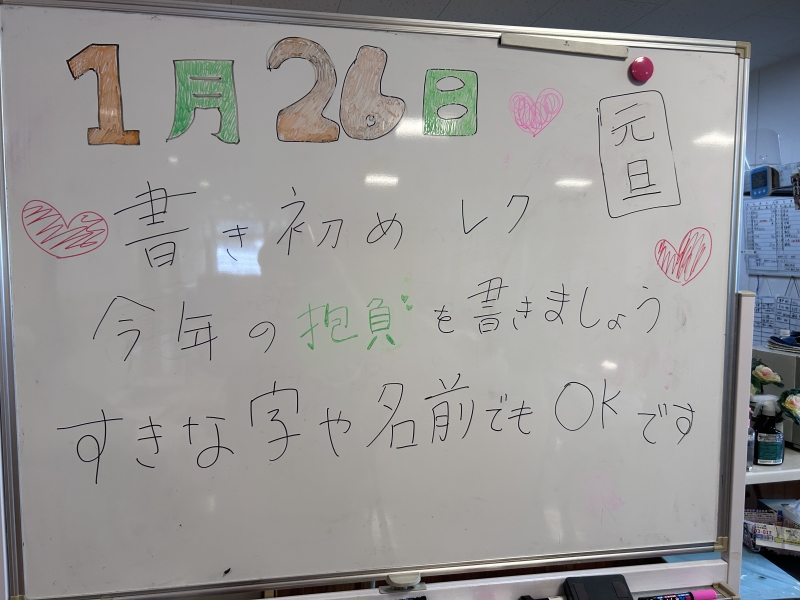 1月26日
元旦
書き初め レク
今年の抱負を書きましょう
すきな字や名前でもOKです